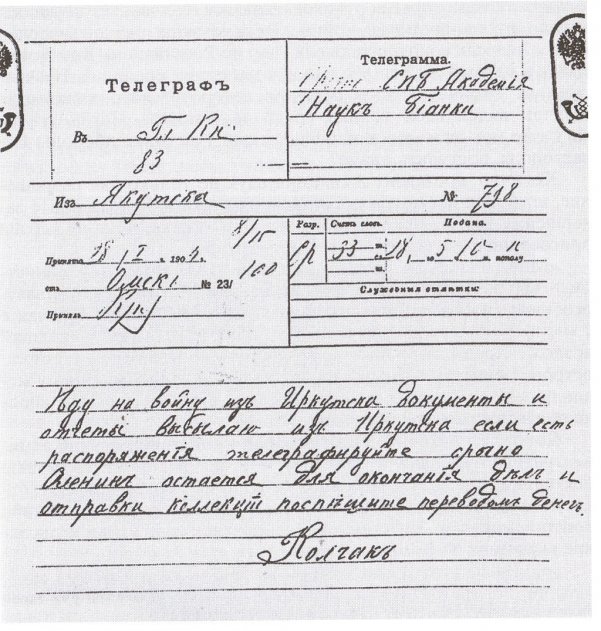 Телеграфъ
Въ Гл Кн
83
Телеграмма.
СПБ Академія
Наукъ Біанки
Изъ Якутска № 798
Принята 28/I 1904 г. 8/15
отъ Омскъ № 23/ 160
Принялъ
Разр. Счетъ словъ. Подана.
Ср 33 28, 5 ч. 16 м. п
Служебныя отмѣтки:
Иду на войну изъ Иркутска документы и
отчеты высылаю изъ Иркутска если есть
распоряженія телеграфируйте срочно
Оленинъ остается для окончанія дѣлъ и
отправки коллекцій поспѣшите переводомъ денегъ
Колчакъ